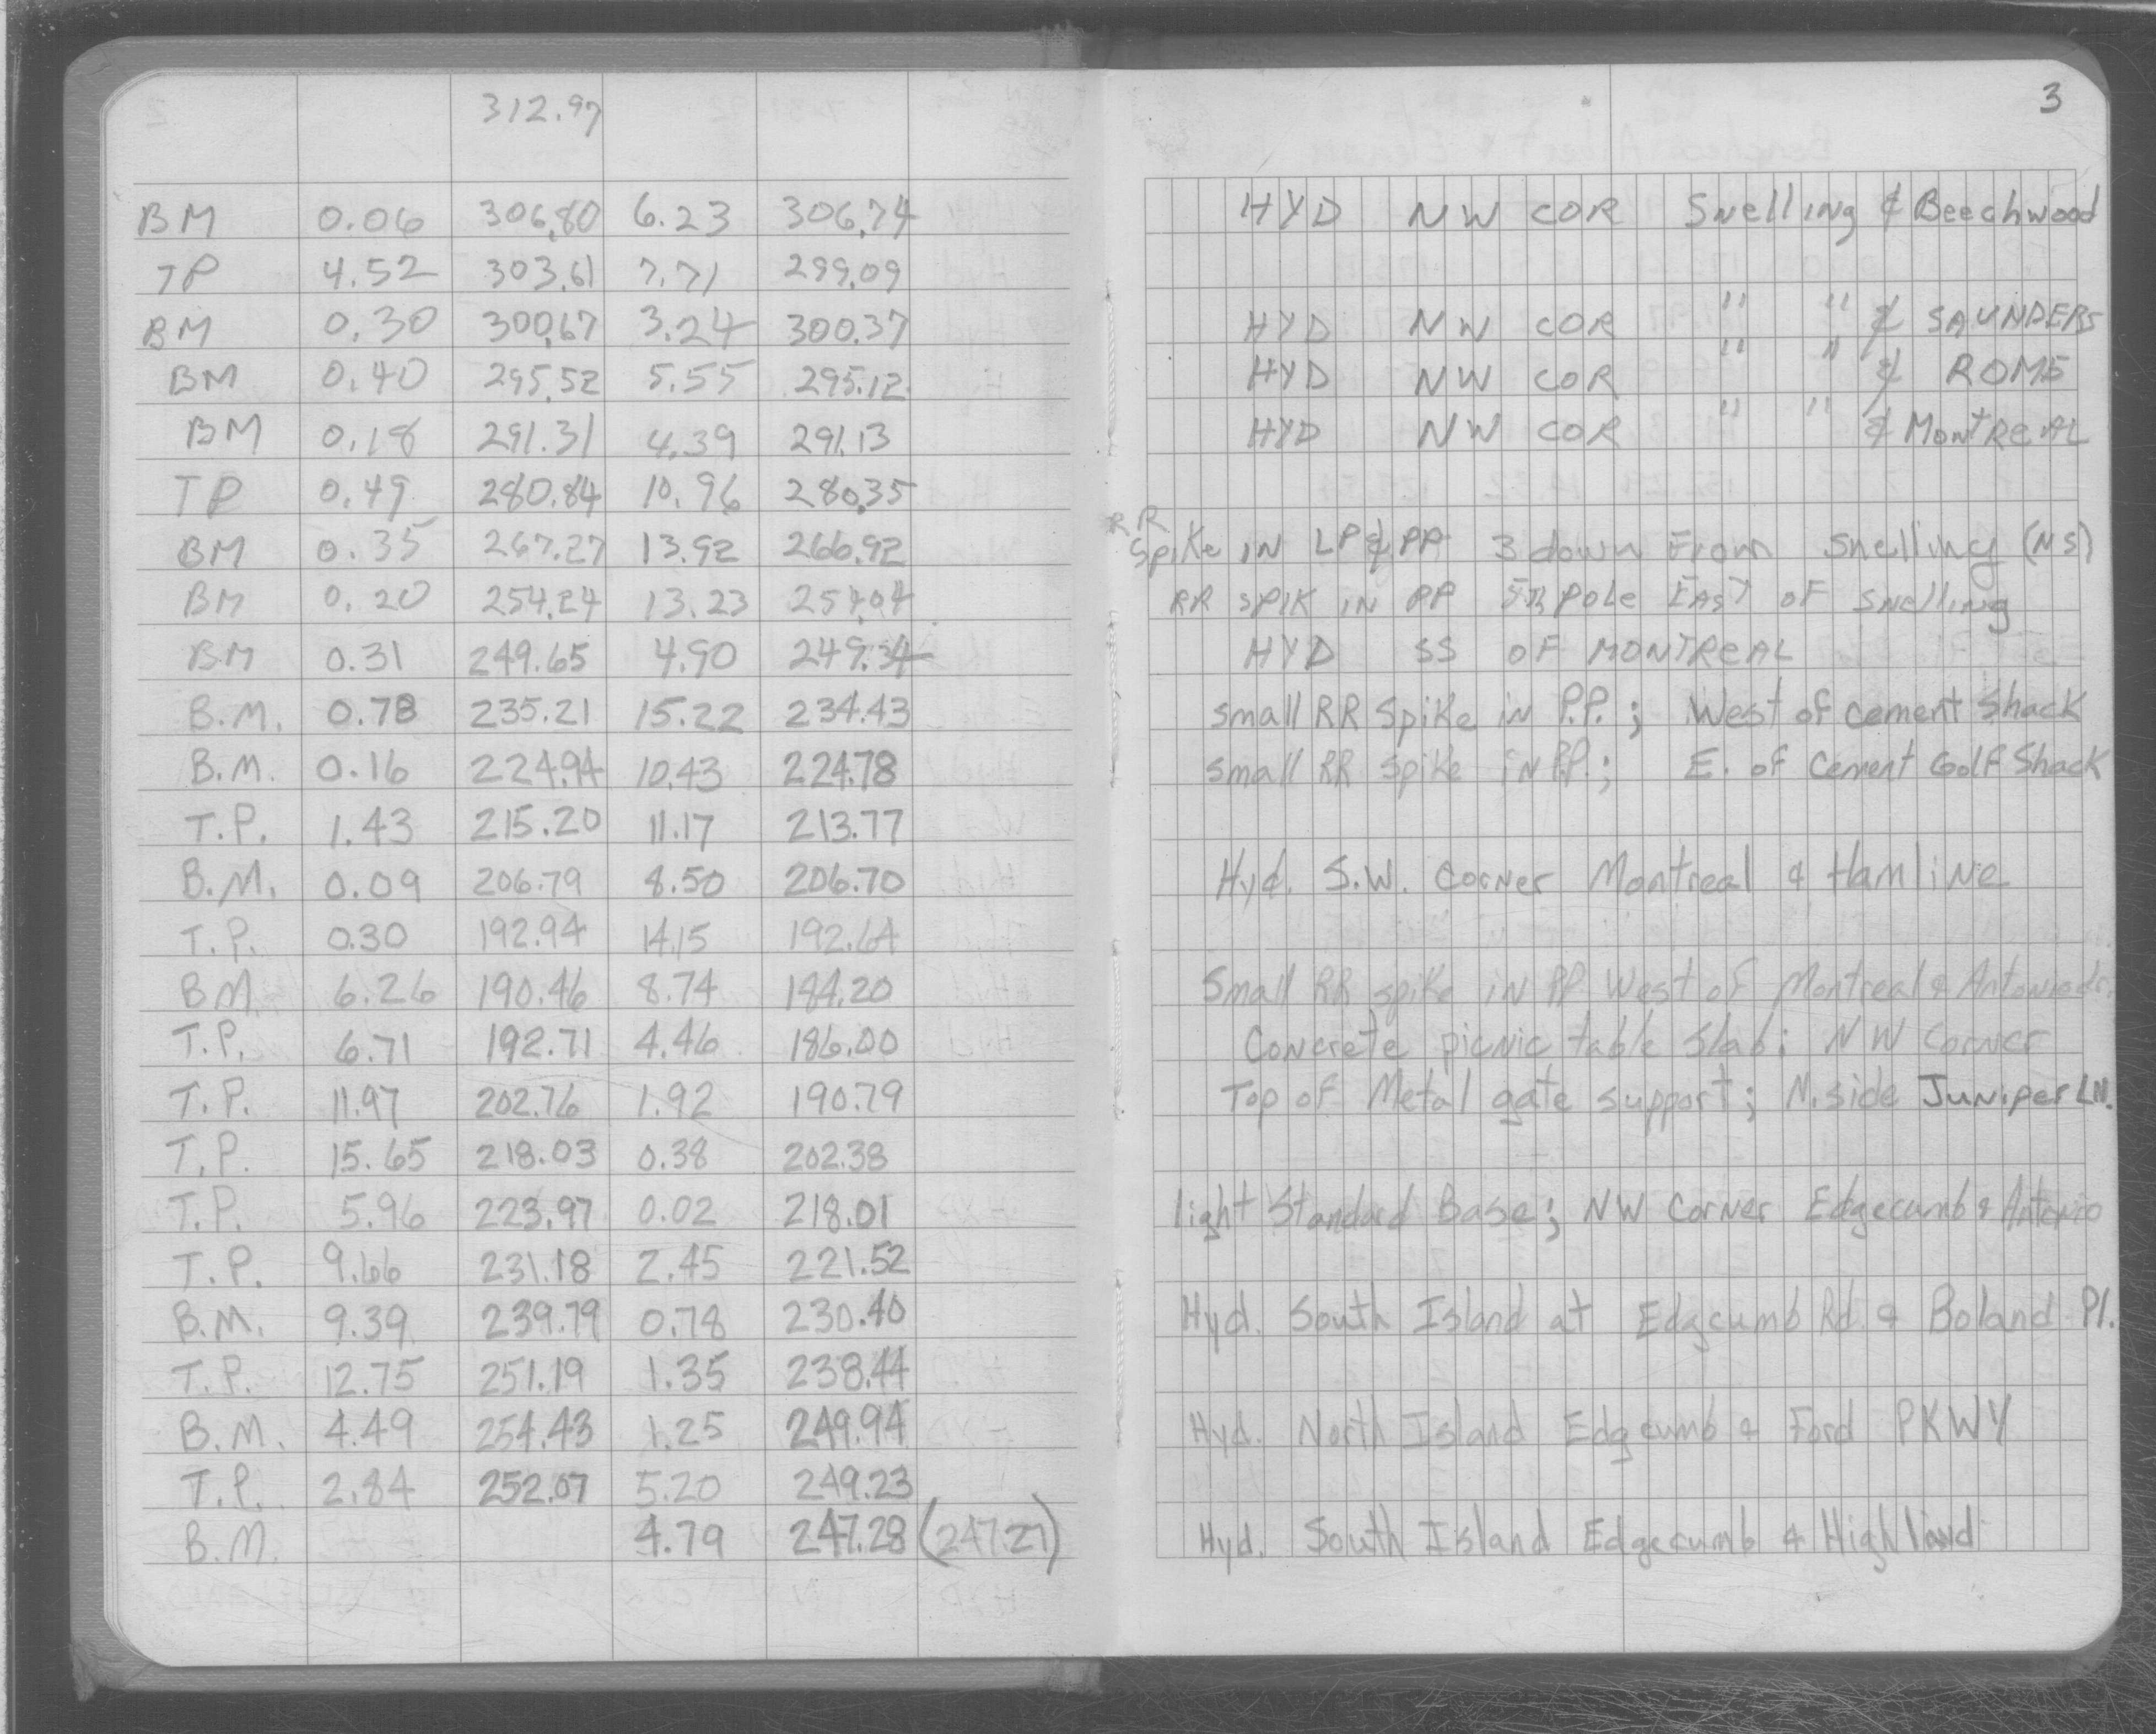 312.97
3
BM 0.06 306.80 6.23 306.74 HYD NW COR Snelling & Beechwood
TP 4.52 303.61 7.71 299.09
BM 0.30 300.67 3.24 300.37 HYD NW COR " " & SAUNDERS
BM 0.40 295.52 5.55 295.12 HYD NW COR " " & ROME
BM 0.18 291.31 4.39 291.13 HYD NW COR " " & MONTREAL
TP 0.49 280.84 10.96 280.35
BM 0.35 267.27 13.92 266.92 RR Spike IN LP & PP 3 down From Snelling (NS)
BM 0.20 254.24 13.23 254.04 RR SPIK IN PP 5th pole EAST OF Snelling
BM 0.31 249.65 4.90 249.34 HYD SS OF MONTREAL
B.M. 0.78 235.21 15.22 234.43 Small RR Spike in P.P.; West of Cement Shack
B.M. 0.16 224.94 10.43 224.78 Small RR Spike in P.P.; E. of Cement Golf Shack
T.P. 1.43 215.20 11.17 213.77
B.M. 0.09 206.79 8.50 206.70 Hyd. S.W. Corner Montreal & Hamline
T.P. 0.30 192.94 14.15 192.64
B.M. 6.26 190.46 8.74 184.20 Small RR spike in PP West of Montreal &
T.P. 6.71 192.71 4.46 186.00 Concrete picnic table slab; NW Corner
T.P. 11.97 202.76 1.92 190.79 Top of Metal gate support; N.side Juniper LN.
T.P. 15.65 218.03 0.38 202.38
T.P. 5.96 223.97 0.02 218.01 light Standard Base; NW Corner Edgecumb & Antonio
T.P. 9.66 231.18 2.45 221.52
B.M. 9.39 239.79 0.78 230.40 Hyd. South Island at Edgcumb Rd. & Boland Pl.
T.P. 12.75 251.19 1.35 238.44
B.M. 4.49 254.43 1.25 249.94 Hyd. North Island Edgcumb & Ford PKWY
T.P. 2.84 252.07 5.20 249.23
B.M. 4.79 247.28 (247.27) Hyd. South Island Edgecumb & Highland